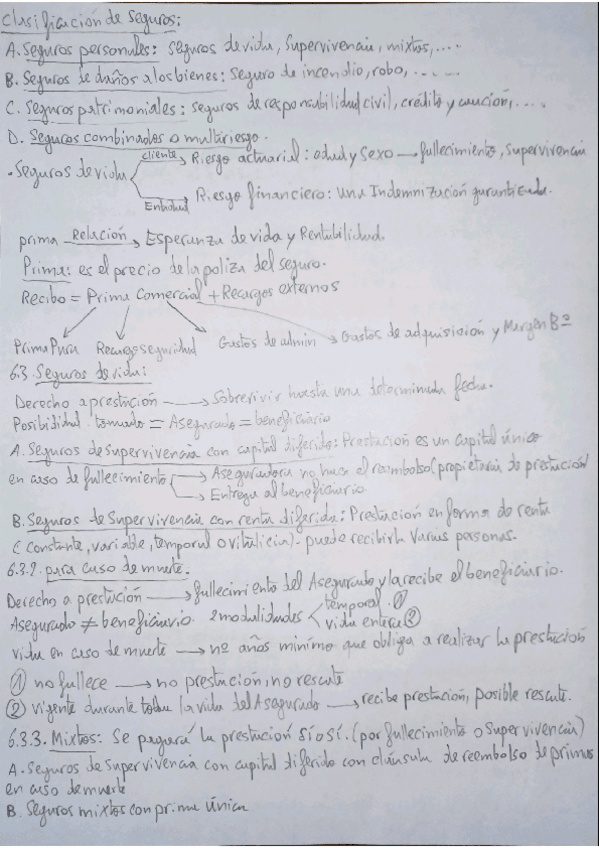 Clasificación de Seguros:
A. Seguros personales: seguros de vida, Supervivencia, mixtos, ....
B. Seguros de daños a los bienes: seguro de incendio, robo, ....
C. Seguros patrimoniales: seguros de responsabilidad civil, crédito y caución, ....
D. Seguros combinados o multirriesgo.
cliente → Riesgo actuarial: edad y sexo → fullecimiento, Supervivencia
• Seguros de vida
Entidad → Riesgo financiero: una Indemnización garantizada.
prima Relación → Esperanza de vida y Rentabilidad.
Prima: es el precio de la poliza del seguro.
Recibo = Prima Comercial + Recargos externos
Prima Pura Recargo seguridad Gastos de admin → Gastos de adquisición y Margen Bº
6.3. Seguros de vida:
Derecho a prestación → Sobrevivir hasta una determinada fecha.
Posibilidad tomador = Asegurado = beneficiario
A. Seguros de Supervivencia con capital diferido: Prestación es un capital único
en caso de fullecimiento → Aseguradora no hace el reembolso (propietaria de prestación)
→ Entrega al beneficiario
B. Seguros de Supervivencia con renta diferida: Prestación en forma de renta
(constante, variable, temporal o vitalicia). puede recibirla varias personas.
6.3.2. para caso de muerte.
Derecho a prestación → fullecimiento del Asegurado y la recibe el beneficiario.
Asegurado ≠ beneficiario. 2 modalidades temporal. ①
vida entera ②
vida en caso de muerte → nº años mínimo que obliga a realizar la prestación
① no fullece → no prestación, no rescate
② vigente durante toda la vida del Asegurado → recibe prestación, posible rescate.
6.3.3. Mixtos: Se pagará la prestación Sí o sí. (por fullecimiento o Supervivencia)
A. Seguros de Supervivencia con capital diferido con cláusula de reembolso de primas
en caso de muerte
B. Seguros mixtos con prima única